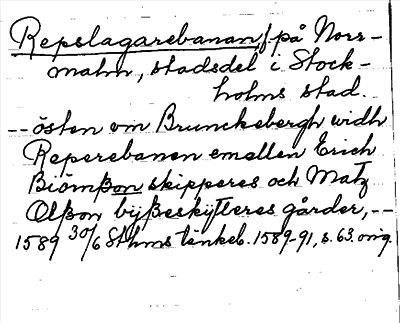 Repslagarebanan, på Norr-
malm, stadsdel i Stock-
holms stad.
-- östen om Brunckebergh widh
Reperebanen emellen Erich
Biömßon skipperes och Matz
Olßon bijßeskÿtteres gårder, --
1589 30/6 Sthms tänkeb. 1589-91, s. 63. orig.